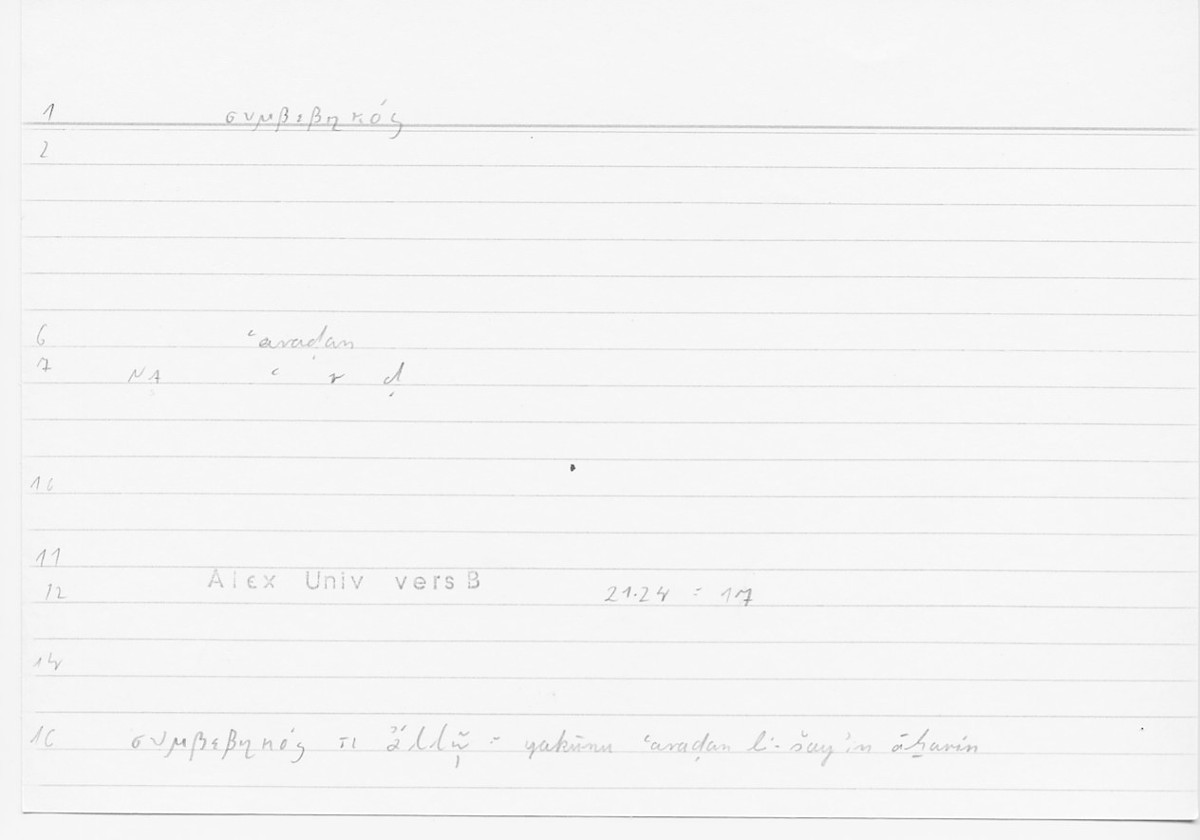 1 συμβεβηκός
2
6 ʿaraḍan
7 NA ʿ r ḍ
10
11
12 Alex Univ vers B 21.24 = 17
14
16 συμβεβηκός τι ἄλλῳ = yakūnu ʿaraḍan li-šayʾin āḫarin